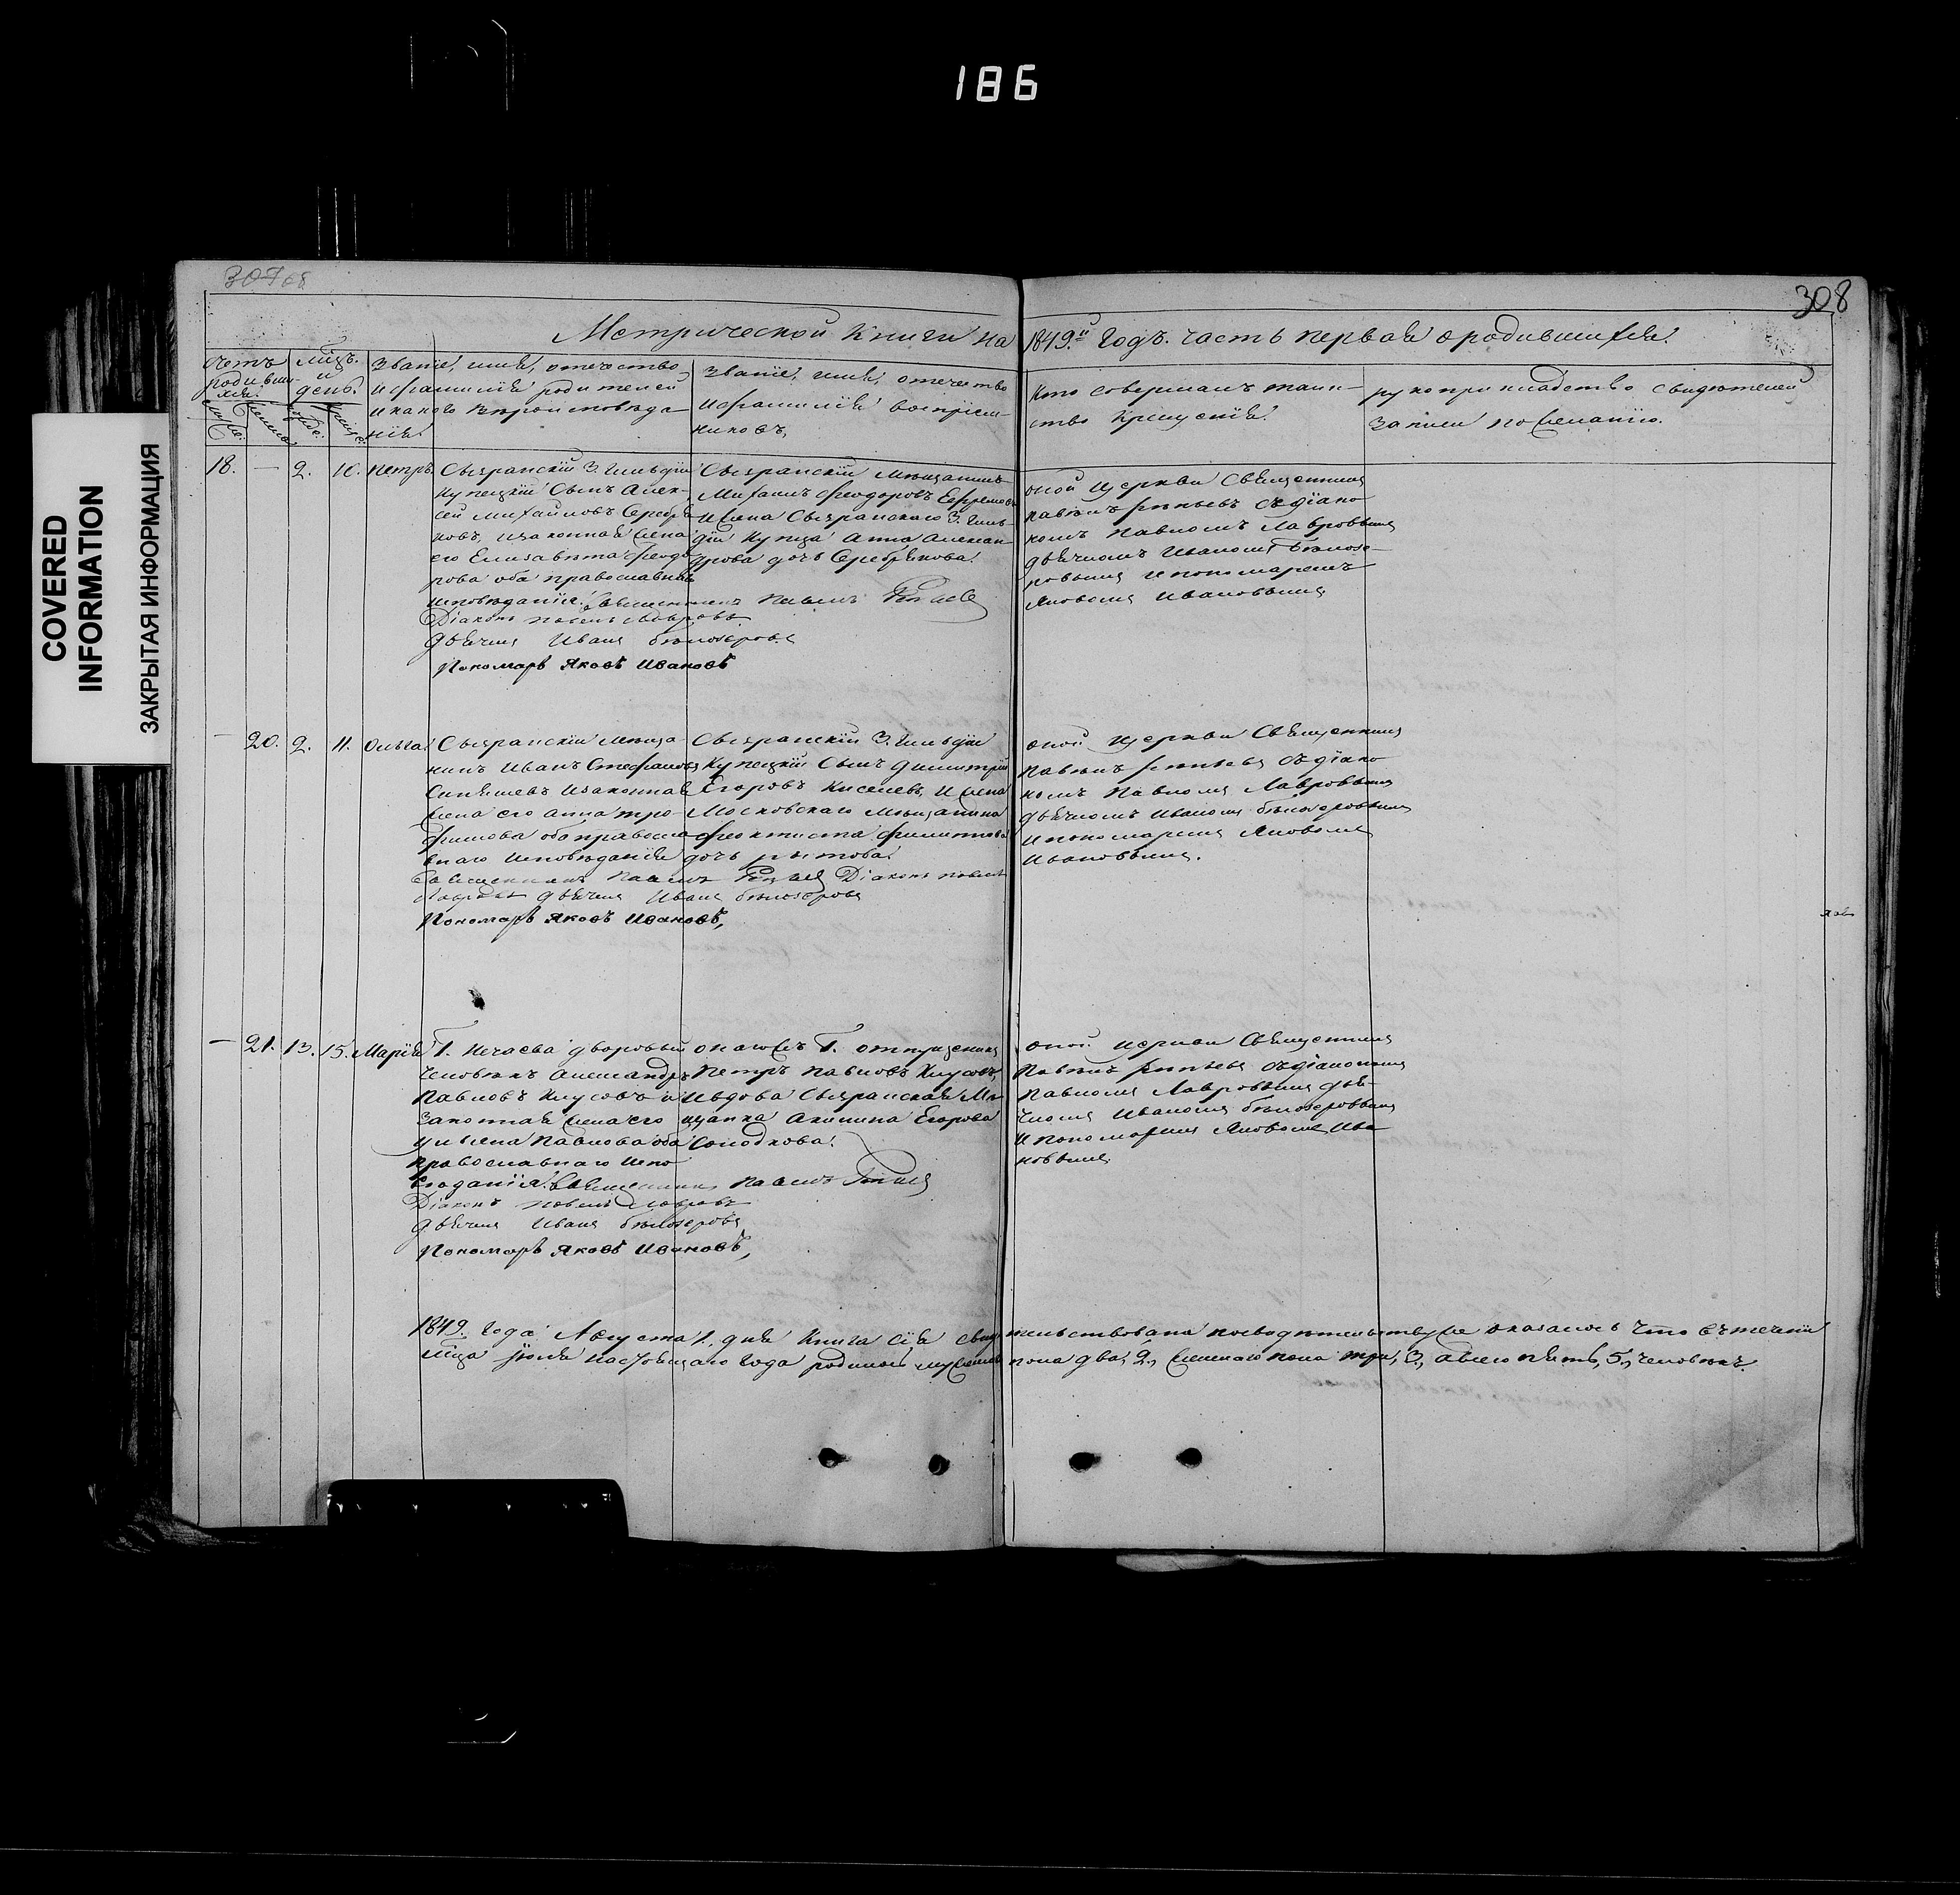 186
COVERED
INFORMATION
ЗАКРЫТАЯ ИНФОРМАЦИЯ
307
308
Метрической Книги на 1849й годъ часть первая о родившихся.
Счетъ
родивши-
хся.
Мцъ.
и
день.
Званіе, имя, отечество,
и фамилія родителей
и какова вѣроисповѣда-
нія.
Званіе, имя, отечество
и фамилія воспріем-
никовъ,
Кто совершалъ таин-
ство Крещенія.
рукоприкладство свидѣтелей
записи по желанію.
18. — 2. 10. Петръ
Сызранскій 3. гильдіи
Купецкій Сынъ Алек-
сѣй Михайловъ Серебря-
ковъ, и законная жена
его Елизавета Феодо-
рова оба православнаго
исповѣданія. Священникъ Павелъ
Діаконъ Павелъ Лавровъ
Дьячекъ Иванъ Бѣлозеровъ
Пономарь Яковъ Ивановъ
Сызранскій мѣщанинъ
Михаилъ Феодоровъ Ефремовъ
и жена Сызранскаго 3. гиль-
діи Купца Анна Алексан-
дрова дочь Серебрякова.
оной Церкви Священникъ
съ діако-
номъ Павломъ Лавровымъ
дьячкомъ Иваномъ Бѣлозе-
ровымъ и пономаремъ
Яковомъ Ивановымъ
— 20. 2. 11. Ольга
Сызранскій мѣща-
нинъ Иванъ Стефановъ
Синявъ и законная
жена его Анна Тро-
фимова оба правосла-
внаго исповѣданія
Священникъ Павелъ Діаконъ Павелъ
Лавровъ Дьячекъ Иванъ Бѣлозеровъ
Пономарь Яковъ Ивановъ,
Сызранскій 3. гильдіи
Купецкій Сынъ Димитрій
Егоровъ Киселевъ, и жена
Московскаго мѣщанина
Феоктиста Филиппова
дочь
оной Церкви Священникъ
съ діако-
номъ Павломъ Лавровымъ
дьячкомъ Иваномъ Бѣлозеровымъ
и пономаремъ Яковомъ
Ивановымъ.
— 21. 13. 15. Марія
Г. Нечаева дворовый
человѣкъ Александръ
Павловъ и
законная жена его
Ульяна Павлова оба
православнаго испо-
вѣданія. Священникъ Павелъ
Діаконъ Павелъ Лавровъ
Дьячекъ Иванъ Бѣлозеровъ
Пономарь Яковъ Ивановъ,
онаго жъ Г. отпущеникъ
Петръ Павловъ
и вдова Сызранская Мѣ-
щанка Акилина Егорова
Солодкова.
оной Церкви Священникъ
съ діакономъ
Павломъ Лавровымъ дья-
чкомъ Иваномъ Бѣлозеровымъ
и пономаремъ Яковомъ Ива-
новымъ.
1849. года Августа 1. дня Книга сія свидѣтельствована по свидѣтельству же оказалось что въ теченіи
мца Іюля настоящаго года родилось мужеска пола два, 2, женскаго пола три, 3, а всего пять, 5, человѣкъ.